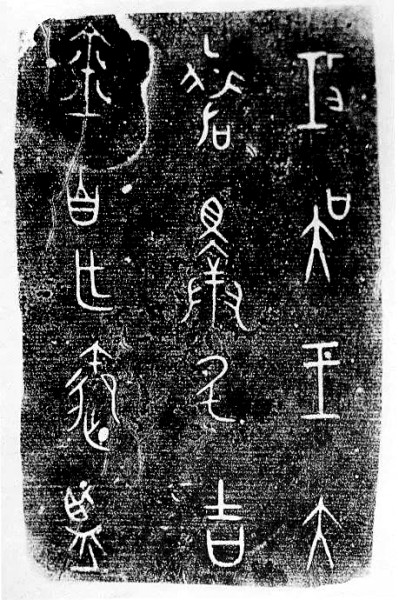 攻吴王夫
差擇氒吉
金自乍御監